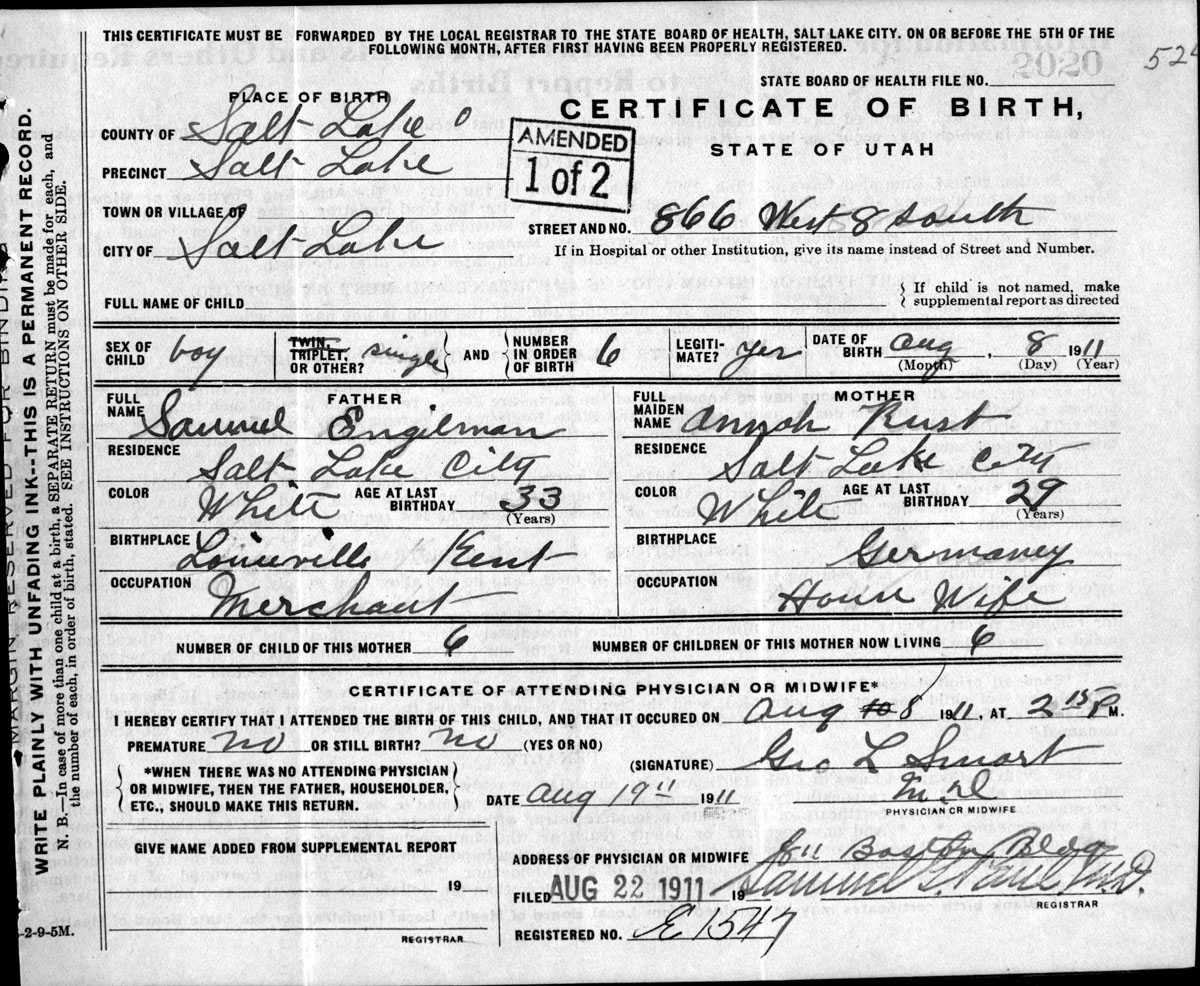 THIS CERTIFICATE MUST BE FORWARDED BY THE LOCAL REGISTRAR TO THE STATE BOARD OF HEALTH, SALT LAKE CITY. ON OR BEFORE THE 5TH OF THE
FOLLOWING MONTH, AFTER FIRST HAVING BEEN PROPERLY REGISTERED.
524
STATE BOARD OF HEALTH FILE NO.
PLACE OF BIRTH
CERTIFICATE OF BIRTH,
STATE OF UTAH
COUNTY OF Salt Lake
AMENDED
1 of 2
PRECINCT Salt Lake
TOWN OR VILLAGE OF
STREET AND NO. 866 West 8 South
CITY OF Salt Lake
If in Hospital or other Institution, give its name instead of Street and Number.
FULL NAME OF CHILD
If child is not named, make
supplemental report as directed
SEX OF CHILD boy
TWIN, TRIPLET, OR OTHER? single AND
NUMBER IN ORDER OF BIRTH 6
LEGITI-MATE? yes
DATE OF BIRTH Aug, 8 1911
(Month) (Day) (Year)
FATHER
FULL NAME Samuel Engilman
RESIDENCE Salt Lake City
COLOR White AGE AT LAST BIRTHDAY 33
(Years)
BIRTHPLACE Louieville Kent
OCCUPATION Merchant
MOTHER
FULL MAIDEN NAME Annah Rust
RESIDENCE Salt Lake City
COLOR White AGE AT LAST BIRTHDAY 29
(Years)
BIRTHPLACE Germaney
OCCUPATION House Wife
NUMBER OF CHILD OF THIS MOTHER 6 NUMBER OF CHILDREN OF THIS MOTHER NOW LIVING 6
CERTIFICATE OF ATTENDING PHYSICIAN OR MIDWIFE*
I HEREBY CERTIFY THAT I ATTENDED THE BIRTH OF THIS CHILD, AND THAT IT OCCURED ON Aug 10 8 1911, AT 2 15 P M.
PREMATURE no OR STILL BIRTH? no (YES OR NO)
(SIGNATURE) Geo L Smart
M.D.
PHYSICIAN OR MIDWIFE
*WHEN THERE WAS NO ATTENDING PHYSICIAN
OR MIDWIFE, THEN THE FATHER, HOUSEHOLDER,
ETC., SHOULD MAKE THIS RETURN.
DATE Aug 19 1911
GIVE NAME ADDED FROM SUPPLEMENTAL REPORT
19
REGISTRAR
ADDRESS OF PHYSICIAN OR MIDWIFE Boston Bldg
FILED AUG 22 1911 19 Samuel G. Paul M.D.
REGISTRAR
REGISTERED NO. E 1547
-2-9-5M.
MARGIN RESERVED FOR BINDING
WRITE PLAINLY WITH UNFADING INK--THIS IS A PERMANENT RECORD.
N. B.—In case of more than one child at a birth, a SEPARATE RETURN must be made for each, and
the number of each, in order of birth, stated. SEE INSTRUCTIONS ON OTHER SIDE.